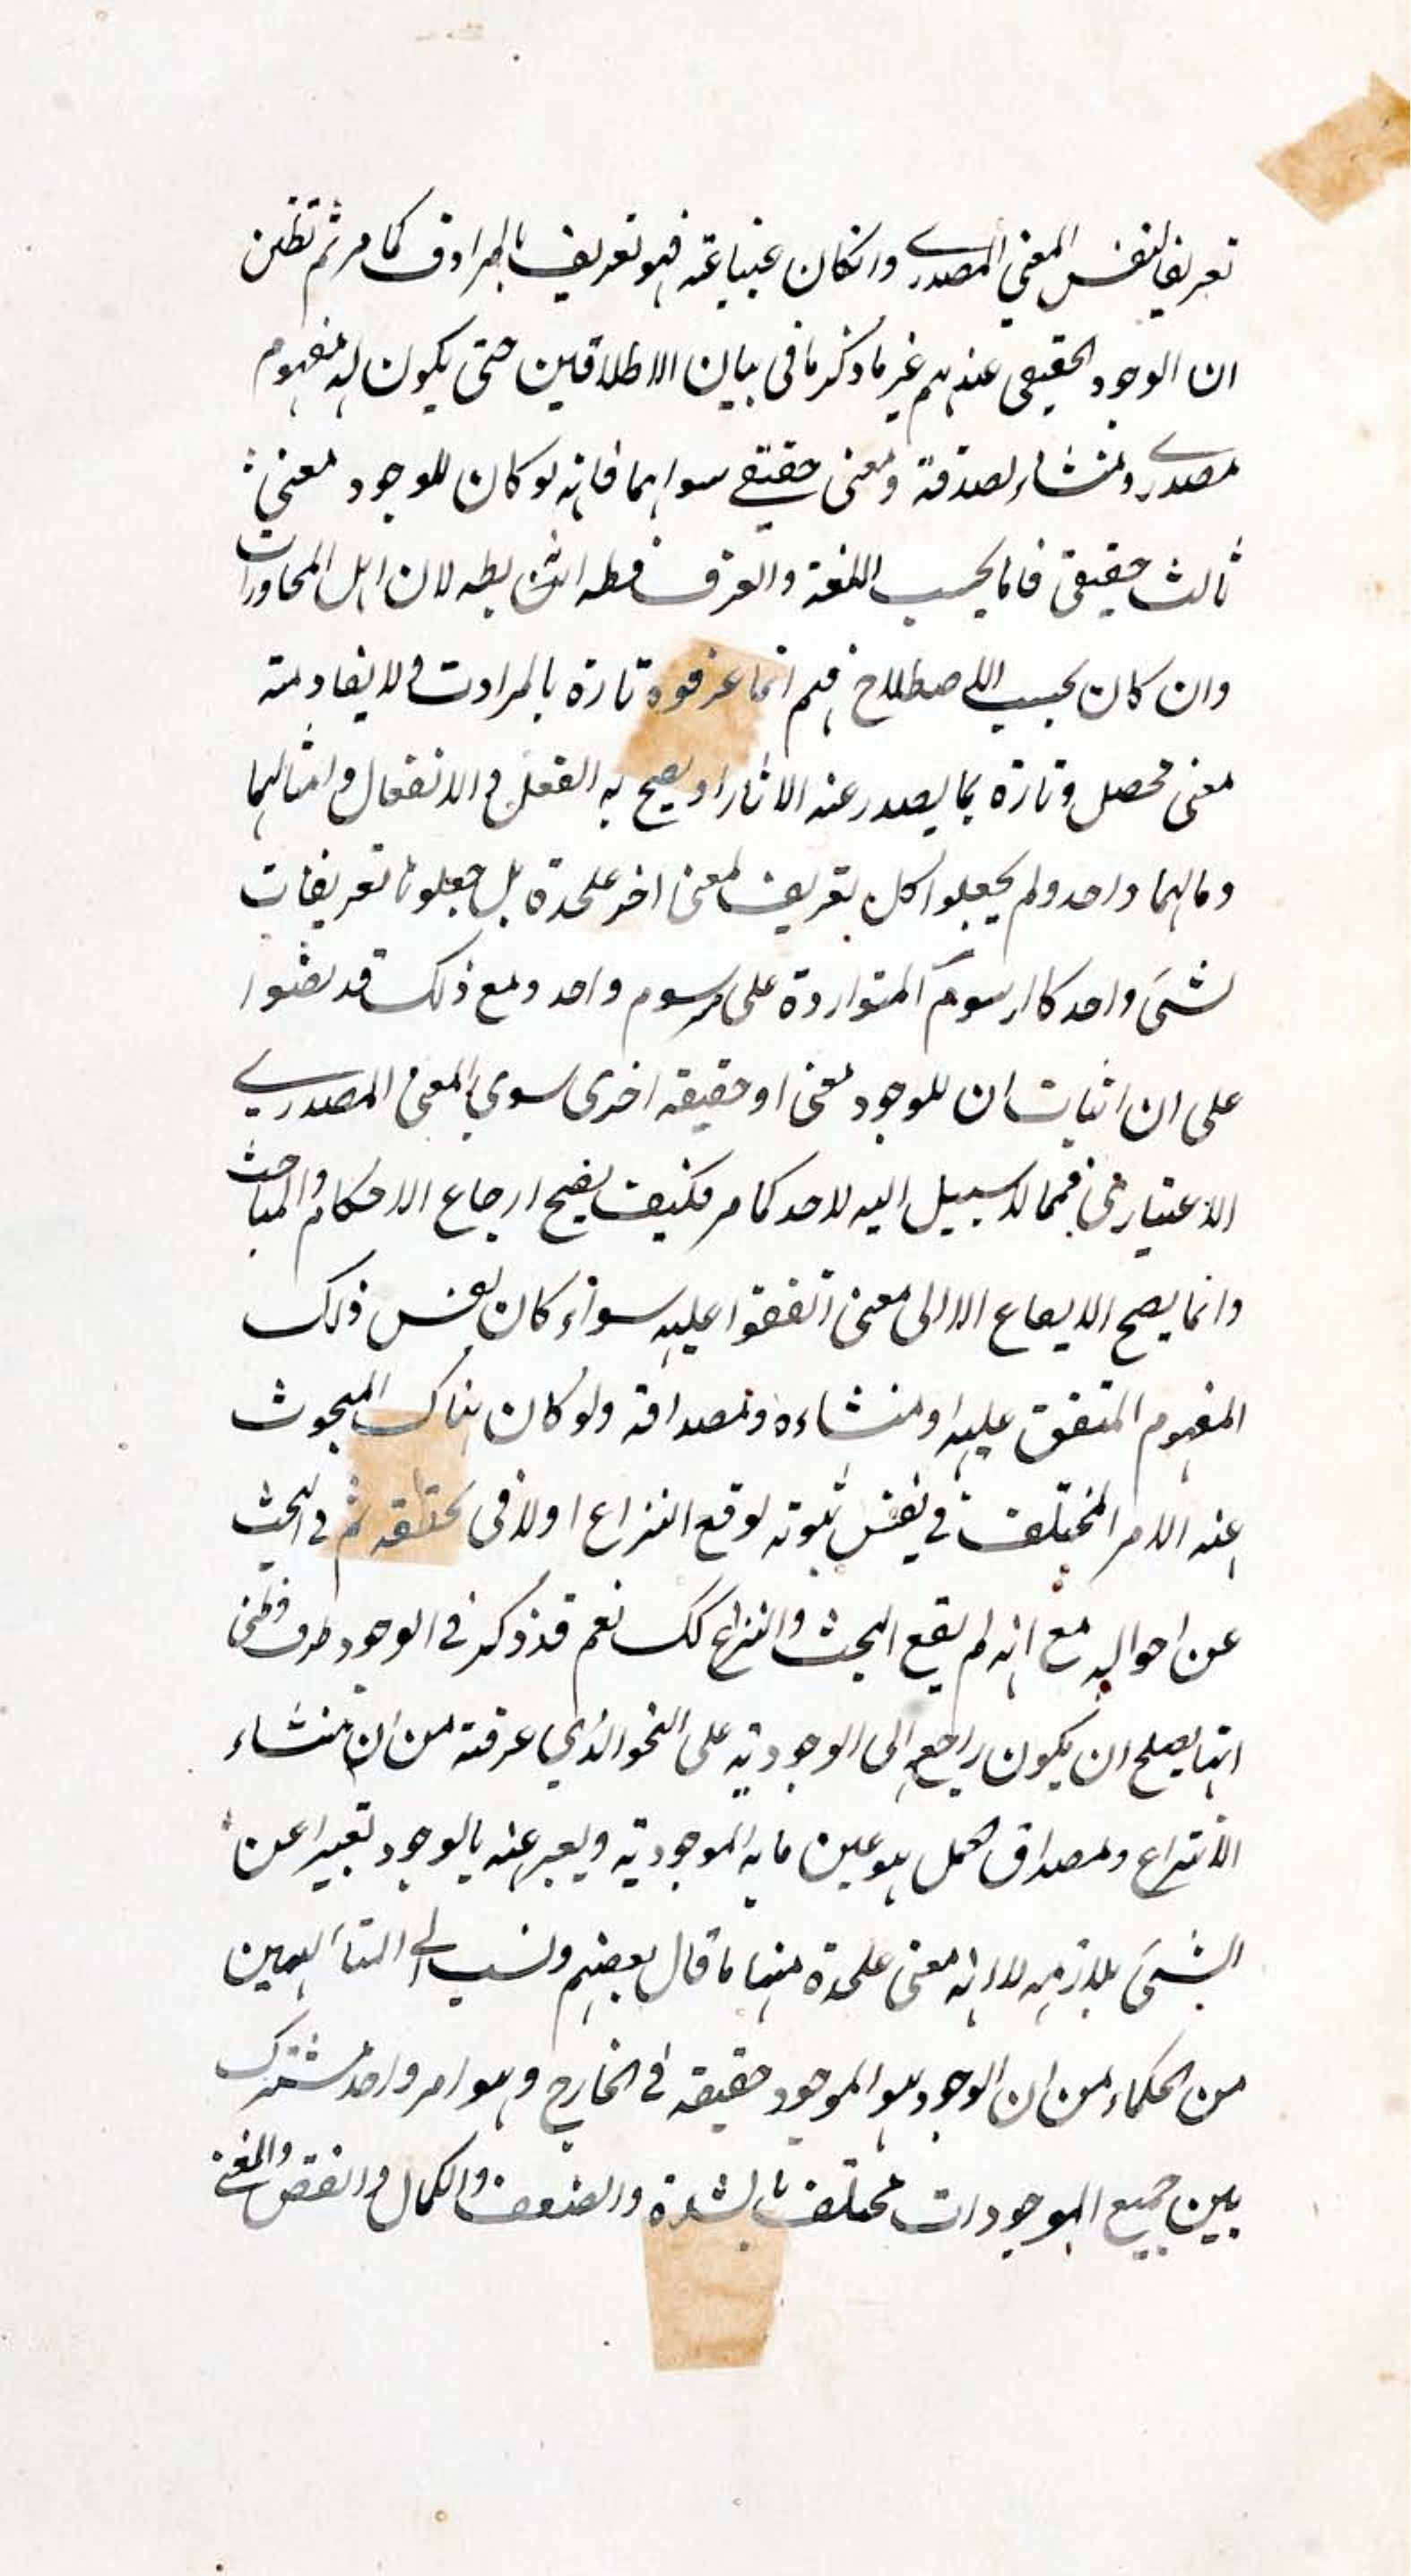 تعريف لنفس المعنى المصدرے وانكان غنيا عنه فهو تعريف بالمرادف كما مر ثم تظن
ان الوجود الحقيقى عندهم غير ما ذكرنا فى بيان الاطلاقين حتى يكون له مفهوم
مصدرے ومنشاء لصدقة ومعنى حقيقے سواهما فانه لو كان للوجود معنى
ثالث حقيقى فاما بحسب اللغة والعرف لان اهل المحاورات
وان كان بحسب الاصطلاح فهم انما عرفوه تارة بالمرادف ولا يفاد منه
معنى محصل وتارة بما يصدر عنه الاثار او يصح به الفعل و الانفعال وامثالهما
ومالهما واحد ولم يجعلوا كل تعريف لمعنى اخر علىحدة بل جعلوها تعريفات
لشئ واحد كالرسوم المتواردة على مرسوم واحد ومع ذلك قد نصوا
على ان اثبات ان للوجود معنى او حقيقة اخرى سوى المعنى المصدرے
الاعتبارى فمما لا سبيل اليه لاحد كما مر فكيف يصح ارجاع الاحكام والمباحث
وانما يصح الا الى معنى اتفقوا عليه سواء كان نفس ذلك
المفهوم المتفق عليه او منشاءه ومصداقه ولو كان هناك المبحوث
عنه الامر المختلف فى نفس ثبوته لوقع النزاع اولا فى تحققه ثم فى البحث
عن احواله مع انه لم يقع البحث والنزاع كك نعم قد ذكر فى الوجود
انها يصلح ان يكون راجعه الى الوجودية على النحو الذي عرفته من ان منشاء
الانتزاع ومصداق الحمل هو عين ما به الموجودية ويعبر عنه بالوجود تعبيرا عن
الشئ بلازمه لا انه معنى علىحدة منها ما قال بعضهم ونسب الى المتألهين
من الحكماء من ان الوجود هو الموجود حقيقة فى الخارج وهو امر واحد مشترك
بين جميع الموجودات مختلف بالشدة والضعف والكمال والنقص والغنى